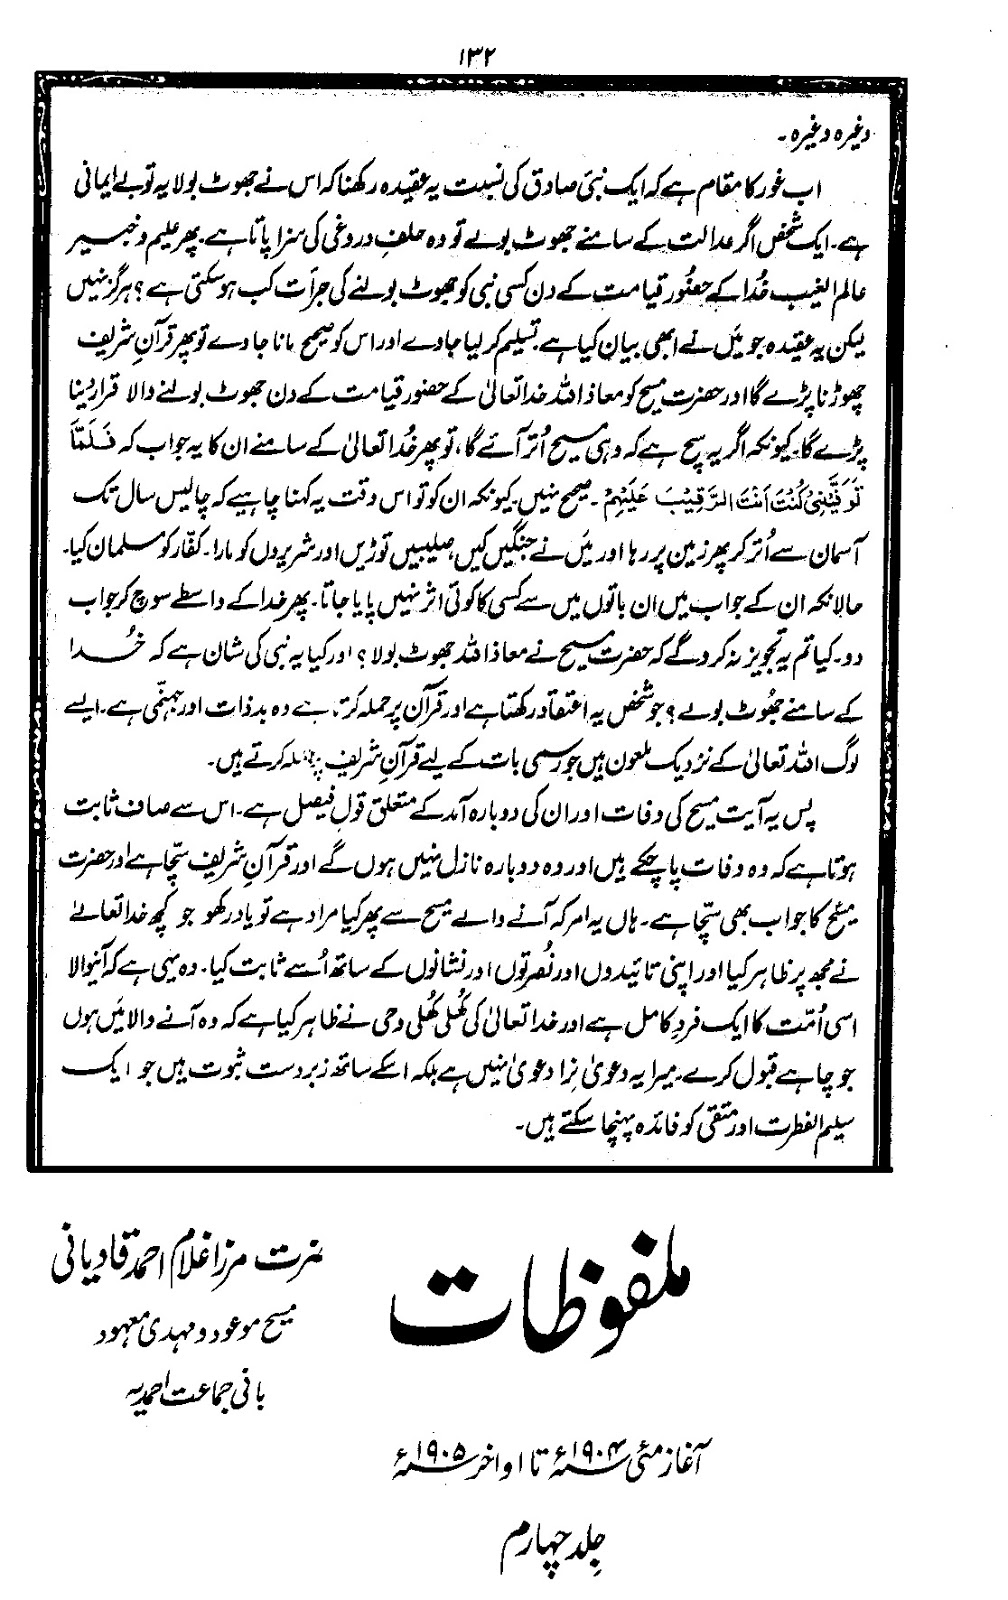 ۱۳۲
وغیرہ وغیرہ۔
اب غور کا مقام ہے کہ ایک نبی صادق کی نسبت یہ عقیدہ رکھنا کہ اس نے جھوٹ بولا یہ تو بے ایمانی
ہے۔ ایک شخص اگر عدالت کے سامنے جھوٹ بولے تو وہ حلف دروغی کی سزا پاتا ہے۔ پھر علیم و خبیر
عالم الغیب خُدا کے حضور قیامت کے دن کسی نبی کو جھوٹ بولنے کی جرأت کب ہو سکتی ہے؟ ہرگز نہیں
لیکن یہ عقیدہ جو مَیں نے ابھی بیان کیا ہے۔ تسلیم کر لیا جاوے اور اس کو صحیح مانا جاوے تو پھر قرآنِ شریف
چھوڑنا پڑے گا اور حضرت مسیح کو معاذ اللہ خدا تعالیٰ کے حضور قیامت کے دن جھوٹ بولنے والا قرار دینا
پڑے گا۔ کیونکہ اگر یہ سچ ہے کہ وہی مسیح اُتر آئے گا، تو پھر خُدا تعالیٰ کے سامنے ان کا یہ جواب کہ فَلَمَّا
تَوَفَّیْتَنِیْ کُنْتَ اَنْتَ الرَّقِیْبَ عَلَیْہِمْ۔ صحیح نہیں۔ کیونکہ ان کو تو اس وقت یہ کہنا چاہیے کہ چالیس سال تک
آسمان سے اُتر کر پھر زمین پر رہا اور مَیں نے جنگیں کیں، صلیبیں توڑیں اور شریروں کو مارا۔ کفار کو مسلمان کیا۔
حالانکہ ان کے جواب میں ان باتوں میں سے کسی کا کوئی اثر نہیں پایا جاتا۔ پھر خدا کے واسطے سوچ کر جواب
دو۔ کیا تم یہ تجویز نہ کرو گے کہ حضرت مسیح نے معاذ اللہ جھوٹ بولا؟ اور کیا یہ نبی کی شان ہے کہ خُدا
کے سامنے جھُوٹ بولے؟ جو شخص یہ اعتقاد رکھتا ہے اور قرآن پر حملہ کرتا ہے وہ بدذات اور جہنمی ہے۔ ایسے
لوگ اللہ تعالیٰ کے نزدیک ملعون ہیں جو رسمی بات کے لیے قرآنِ شریف پر حملہ کرتے ہیں۔
پس یہ آیت مسیح کی وفات اور ان کی دوبارہ آمد کے متعلق قولِ فیصل ہے۔ اس سے صاف ثابت
ہوتا ہے کہ وہ وفات پا چکے ہیں اور وہ دوبارہ نازل نہیں ہوں گے اور قرآنِ شریف سچّا ہے اور حضرت
مسیح کا جواب بھی سچّا ہے۔ ہاں یہ امر کہ آنے والے مسیح سے پھر کیا مراد ہے تو یاد رکھو جو کچھ خدا تعالےٰ
نے مجھ پر ظاہر کیا اور اپنی تائیدوں اور نُصرتوں اور نشانوں کے ساتھ اُسے ثابت کیا۔ وہ یہی ہے کہ آنیوالا
اسی اُمّت کا ایک فردِ کامل ہے اور خدا تعالیٰ کی کھُلی کھُلی وحی نے ظاہر کیا ہے کہ وہ آنے والا مَیں ہوں
جو چاہے قبول کرے۔ میرا یہ دعویٰ نِرا دعویٰ نہیں ہے بلکہ اسکے ساتھ زبردست ثبوت ہیں جو ایک
سلیم الفطرت اور متقی کو فائدہ پہنچا سکتے ہیں۔
ملفوظات
حضرت مرزا غلام احمد قادیانی
مسیح موعود و مہدی معہود
بانی جماعت احمدیہ
آغاز مئی ۱۹۰۴ء تا اواخر ۱۹۰۵ء
جِلد چہارم